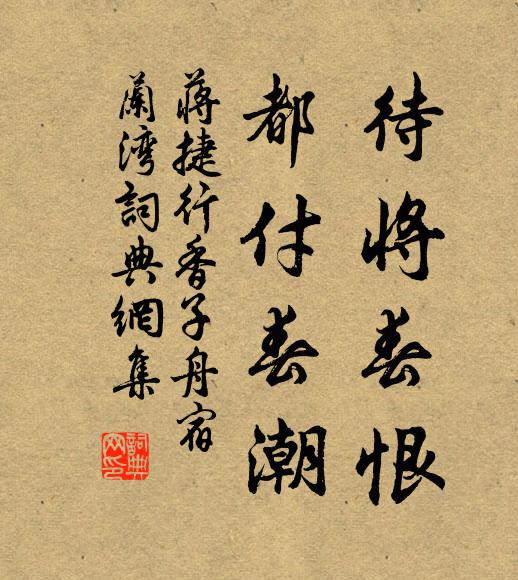 待将春恨
都付春潮
蒋捷行香子舟宿
蘭湾詞典網集
詞典
网印